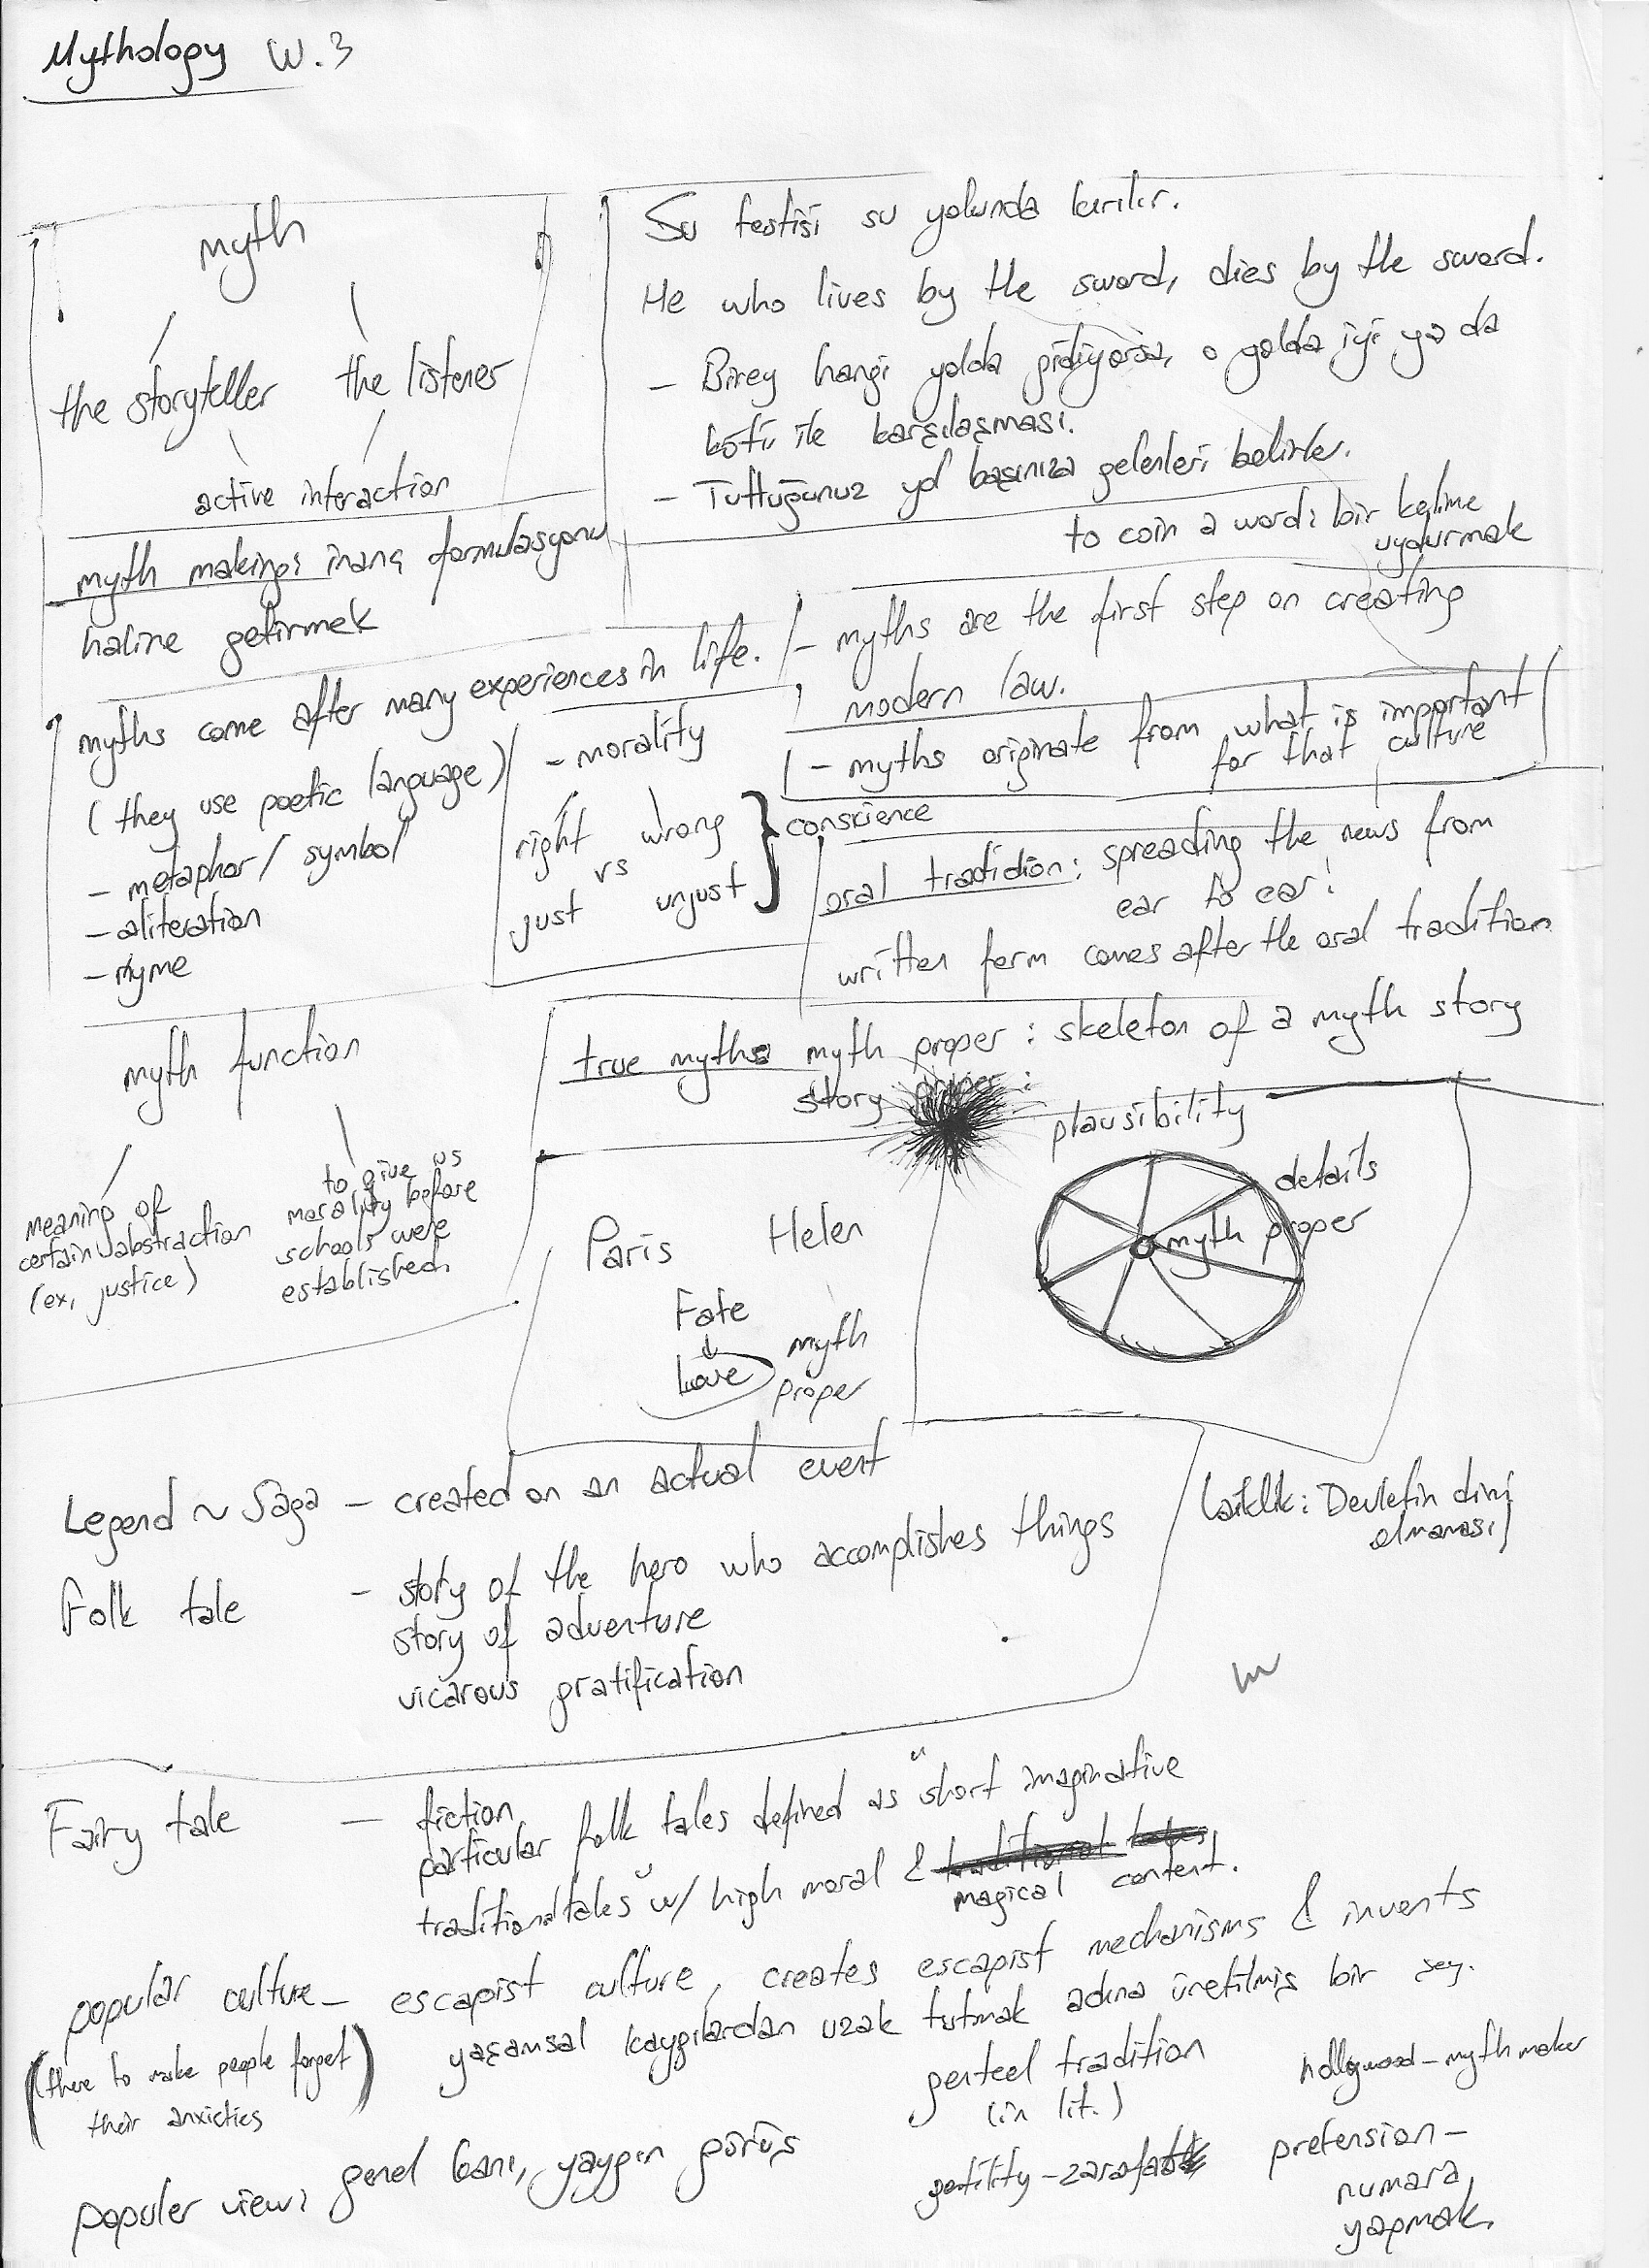 Mythology W.3
myth
the storyteller the listener
active interaction
Su testisi su yolunda kırılır.
He who lives by the sword, dies by the sword.
- Birey hangi yolda gidiyorsa, o yolda iyi ya da
kötü ile karşılaşması.
- Tuttuğunuz yol başınıza gelenleri belirler.
to coin a word: bir kelime
uydurmak
myth making: inanç formulasyonu
haline getirmek
myths come after many experiences in life.
(they use poetic language)
- metaphor/symbol
- aliteration
- rhyme
- morality
right wrong
vs
just unjust
conscience
- myths are the first step on creating
modern law.
- myths originate from what is important
for that culture
oral tradidion: spreading the news from
ear to ear!
written form comes after the oral tradition
myth function
meaning of
certain abstraction
(ex, justice)
to give us
morality before
schools were
established.
true myths myth proper: skeleton of a myth story
story proper:
Paris Helen
Fate
love
myth
proper
plausibility
details
myth proper
Legend ~ Saga - created on an actual event
Folk tale - story of the hero who accomplishes things
story of adventure
vicarous gratification
Laiklik: Devletin dini
olmaması
Fairy tale - fiction
particular folk tales defined as "short imaginative
traditional tales" w/ high moral & traditional tales
magical content.
popular culture - escapist culture, creates escapist mechanisms & invents
(there to make people forget
their anxieties
yaşamsal kaygılardan uzak tutmak adına üretilmiş bir şey.
genteel tradition
(in lit.)
hollywood - mythmaker
populer view: genel kanı, yaygın görüş
gentility - zarafet
pretension -
numara
yapmak.